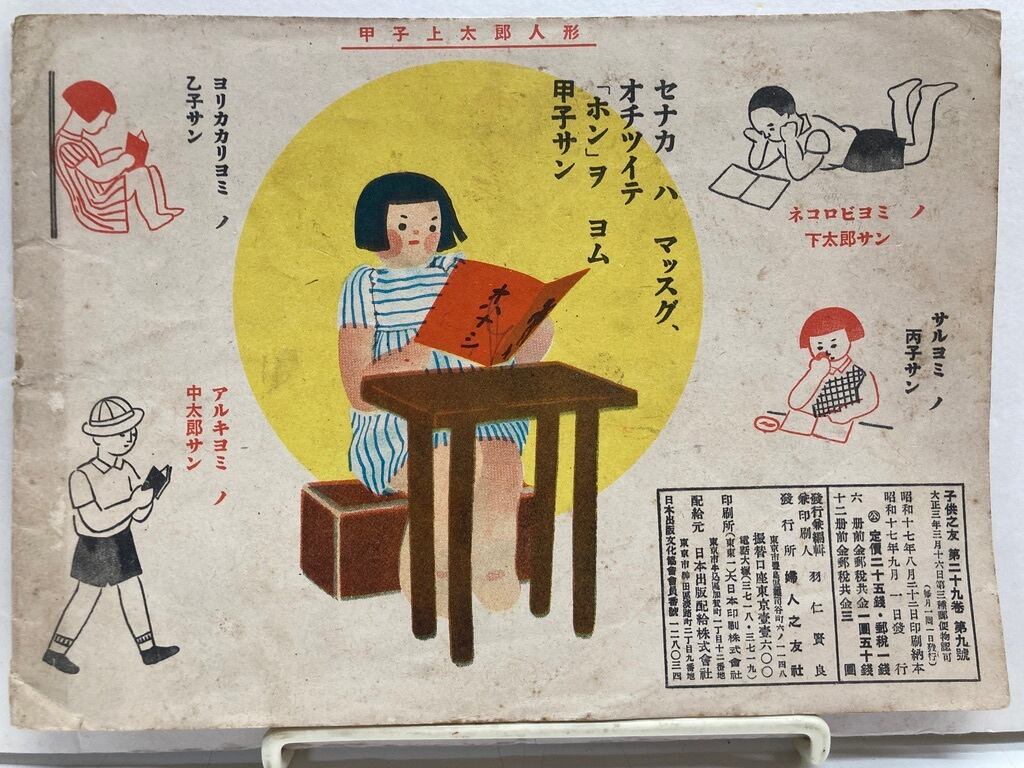 甲子上太郎人形
セナカ ハ マッスグ、
オチツイテ ヨム
「ホン」ヲ
甲子サン
オハナシ
ネコロビヨミ ノ
下太郎サン
サルヨミ ノ
丙子サン
ヨリカカリヨミ ノ
乙子サン
アルキヨミ ノ
中太郎サン
子供之友 第二十九巻 第九號
大正三年三月十六日第三種郵便物認可
(毎月一回一日發行)
昭和十七年八月二十二日印刷納本
昭和十七年九月一日發行
㊍ 定價二十五錢・郵税一錢
六册前金郵税共金一圓五十錢
十二册前金郵税共金三圓
發行兼編輯兼印刷人 羽仁賢良
發行所 婦人之友社
振替口座東京壹壹六〇〇
電話大塚(三七一八・三七一九)
印刷所(東東一)大日本印刷株式會社
東京市牛込區加賀町一丁目十二番地
配給元 日本出版配給株式會社
東京市神田區淡路町二丁目九番地
日本出版文化協會會員番號一二八〇三四